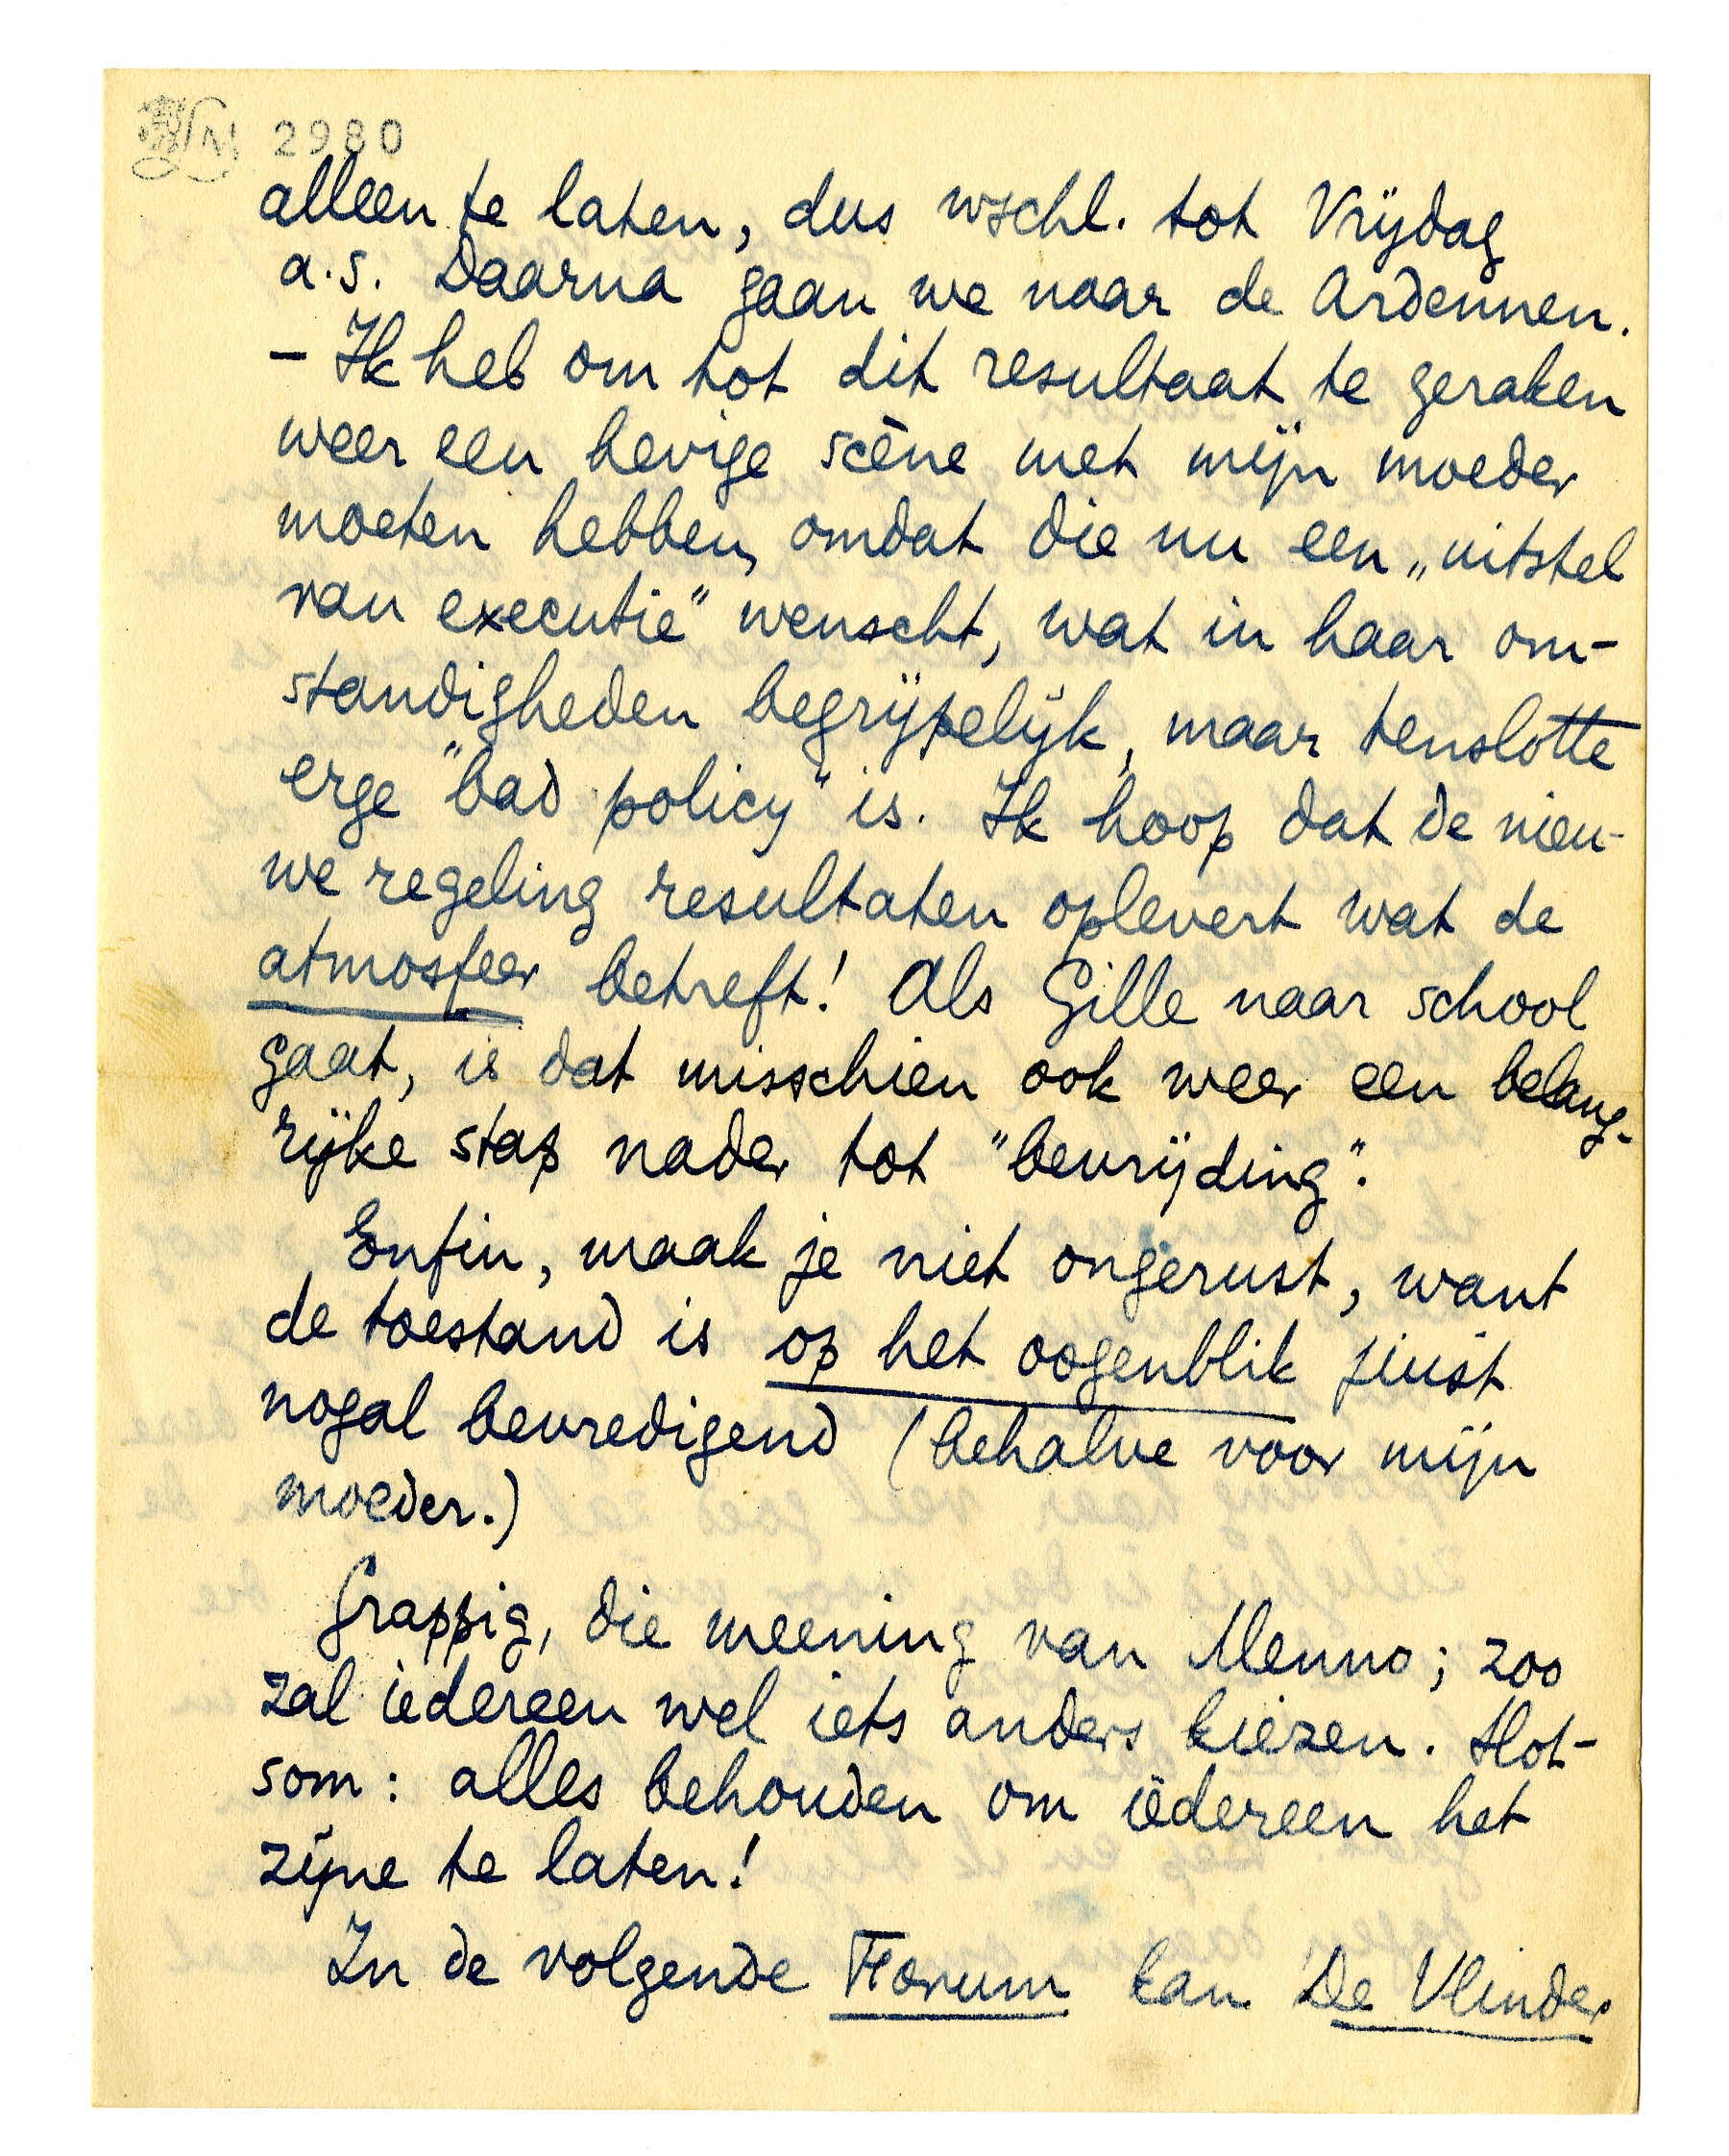 2980
alleen te laten, dus wschl. tot Vrijdag
a.s. Daarna gaan we naar de Ardennen.
– Ik heb om tot dit resultaat te geraken
weer een hevige scène met mijn moeder
moeten hebben, omdat die nu een „uitstel
van executie" wenscht, wat in haar om-
standigheden begrijpelijk, maar tenslotte
erge "bad policy" is. Ik hoop dat de nieu-
we regeling resultaten oplevert wat de
atmosfeer betreft! Als Gille naar school
gaat, is dat misschien ook weer een belang-
rijke stap nader tot "bevrijding".
Enfin, maak je niet ongerust, want
de toestand is op het oogenblik juist
nogal bevredigend (behalve voor mijn
moeder.)
Grappig, die meening van Menno; zoo
zal iedereen wel iets anders kiezen. Slot-
som: alles behouden om iedereen het
zijne te laten!
In de volgende Forum kan De Vlinder